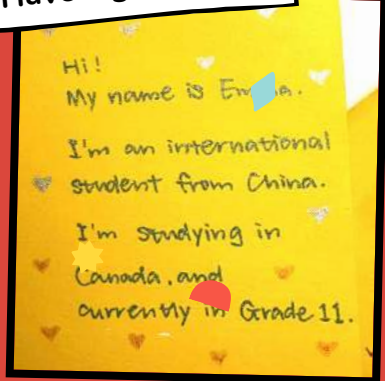 Hi!
My name is
I'm an international
student from China.
I'm studying in
Canada, and
currently in Grade 11.